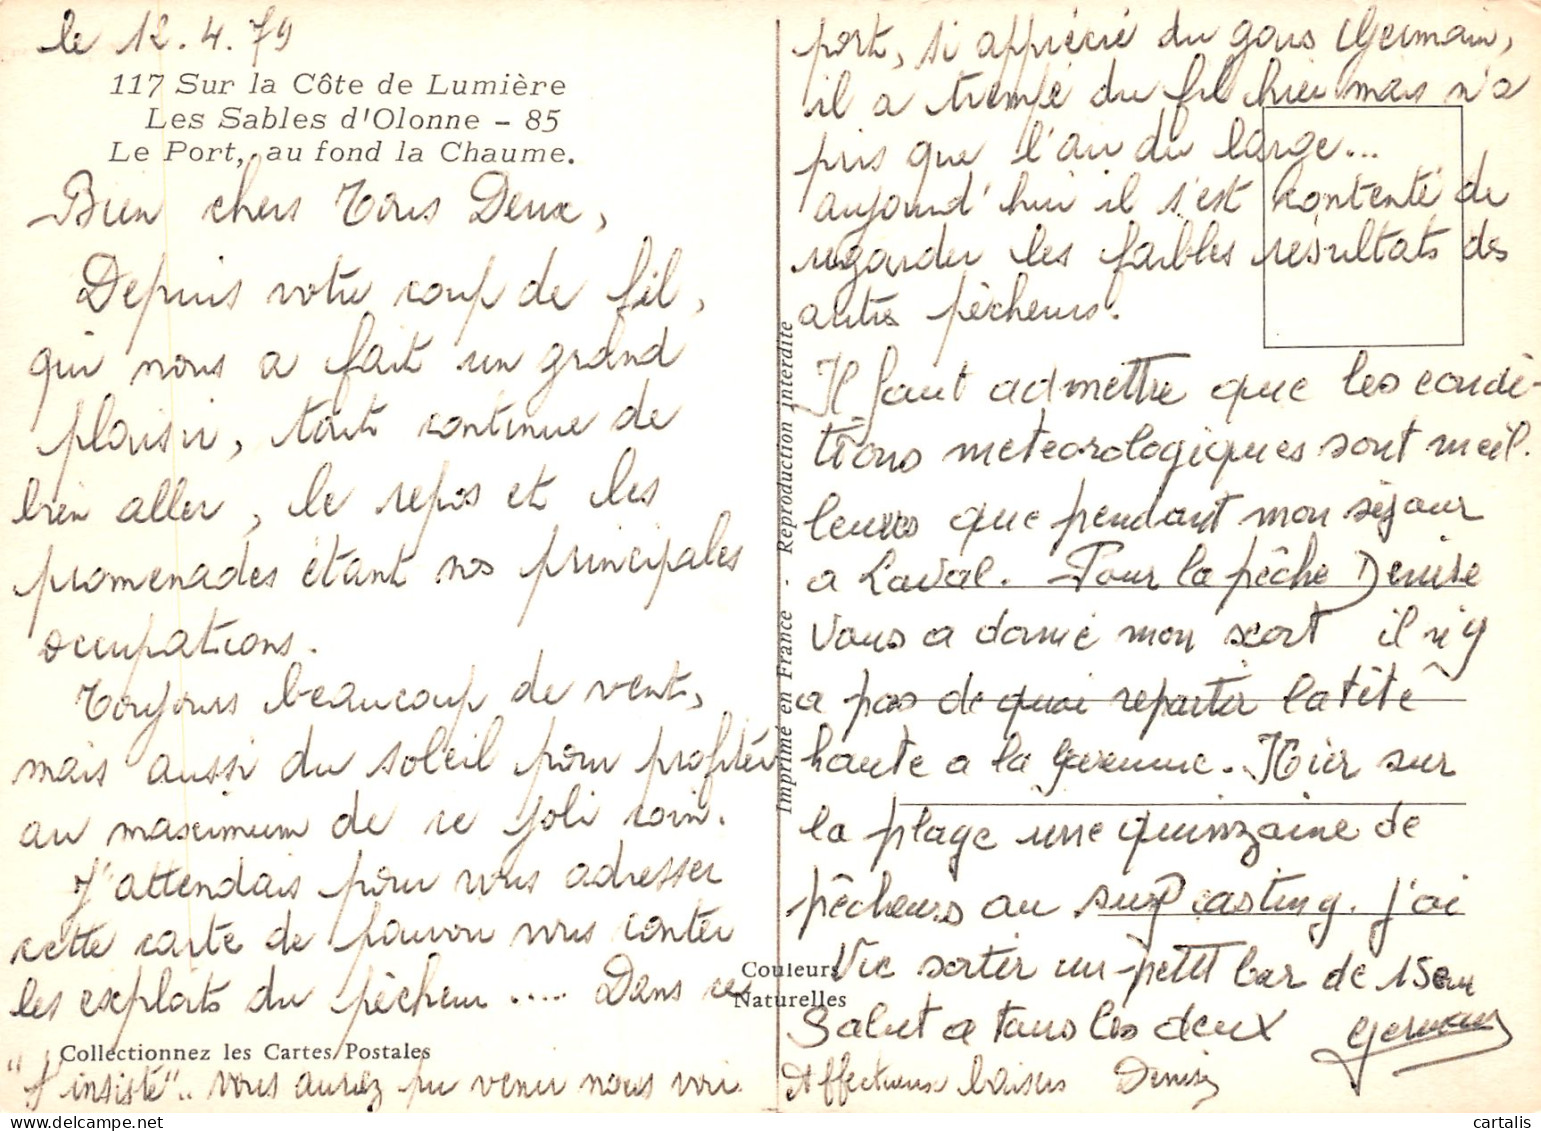 le 12.4.79
117 Sur la Côte de Lumière
Les Sables d'Olonne - 85
Le Port, au fond la Chaume.
Bien chers Tous Deux,
Depuis votre coup de fil,
qui nous a fait un grand
plaisir, tout continue de
bien aller, le repos et les
promenades étant nos principales
occupations.
Toujours beaucoup de vent,
mais aussi du soleil pour profiter
au maximum de ce joli coin.
J'attendais pour vous adresser
cette carte de pouvoir vous conter
les exploits du pêcheur ..... Dans ce
Collectionnez les Cartes Postales
"J'insiste".. vous auriez pu venir nous voir.
Imprimé en France - Reproduction interdite
Couleurs
Naturelles
port, si apprécié du gars Germain,
il a trempé du fil hier mais n'a
pris que l'air du large...
aujourd'hui il s'est contenté de
regarder les faibles résultats des
autres pêcheurs.
Il faut admettre que les condi-
tions meteorologiques sont meil.
leures que pendant mon séjour
a Laval. Pour la pêche Denise
vous a donné mon sort il n'y
a pas de quoi repartir la tête
haute a la Garenne. Hier sur
la plage une quinzaine de
pêcheurs au surf casting. J'ai
Vue sortir un petit bar de 15cm
Salut a tous les deux Germain
Affectueux baisers Denise
cartalis